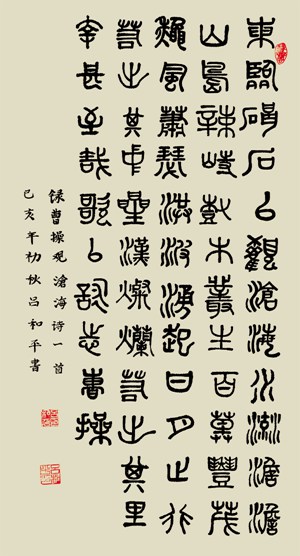 東臨碣石以觀滄海水何澹澹
山島竦峙樹木叢生百草豐茂
秋風蕭瑟洪波湧起日月之行
若出其中星漢燦爛若出其里
幸甚至哉歌以詠志曹操
録曹操观滄海诗一首
己亥年初秋吕和平書